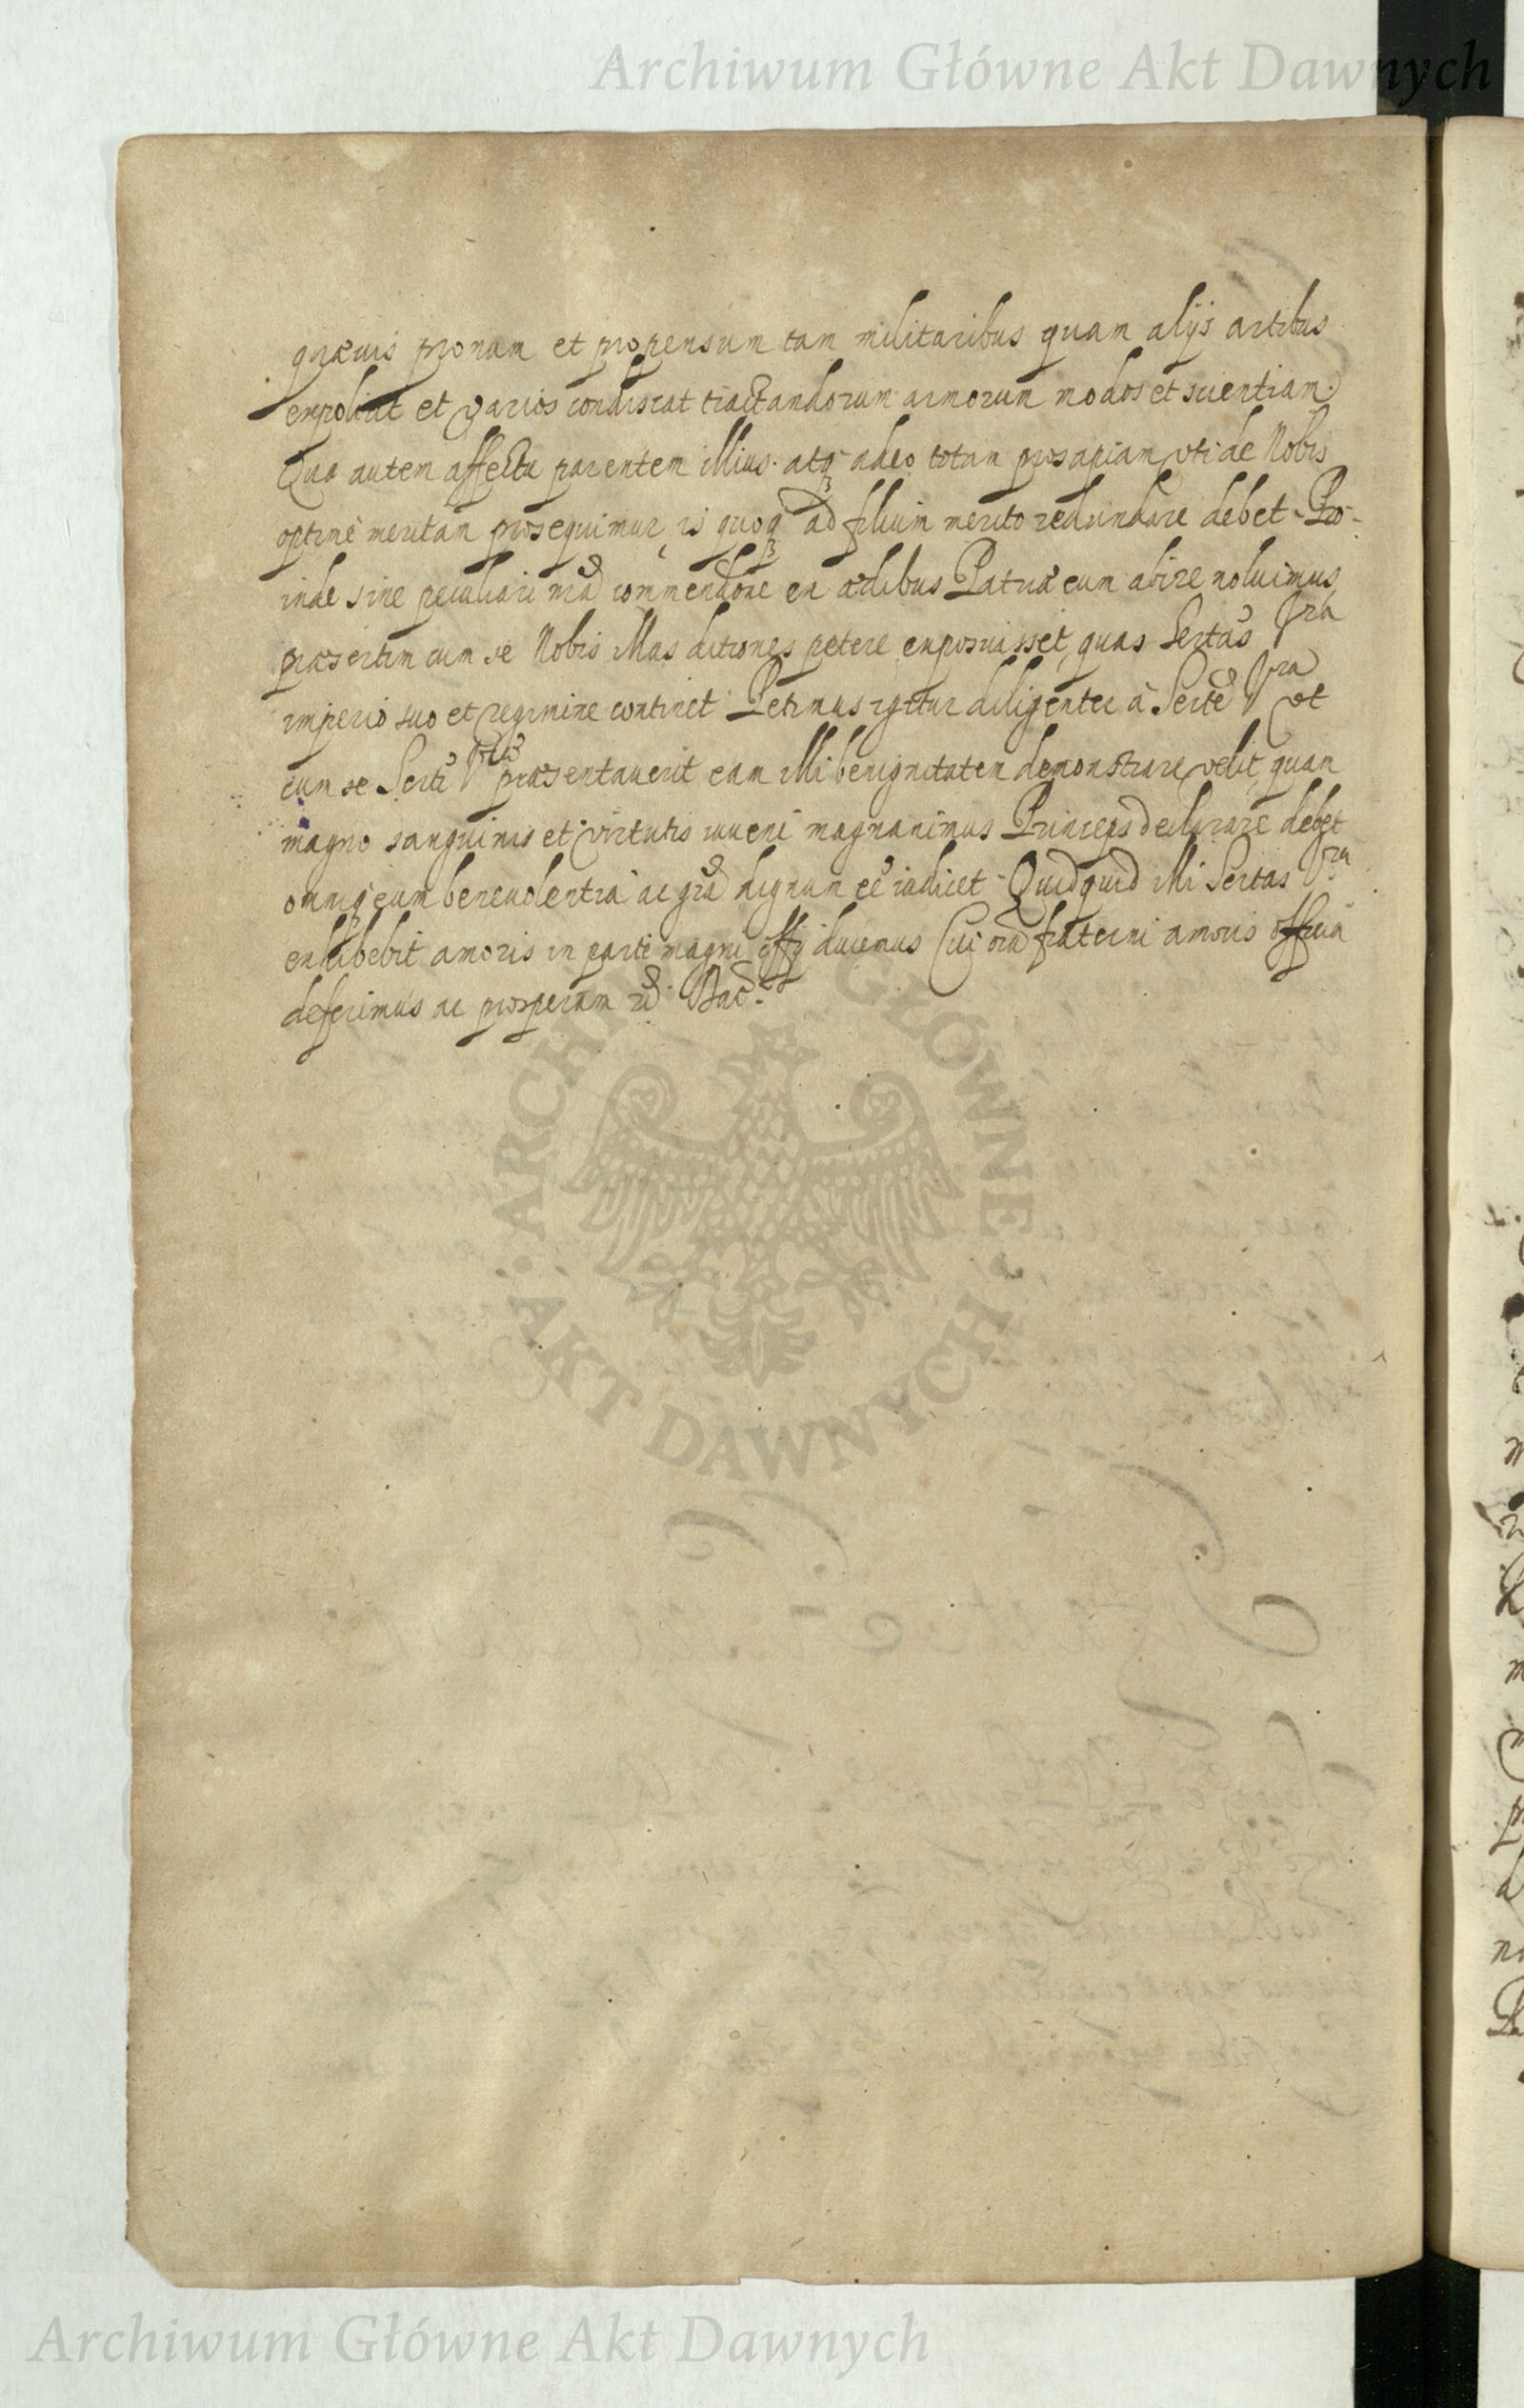 Archiwum Główne Akt Dawnych
quævis pronum et propensum tam militaribus quam alijs artibus
expoliat et varios condiscat tractandorum armorum modos et scientiam.
Quo autem affectu parentem illius atq3 adeo totam prosapiam uti de Nobis
optimè meritam prosequimur, is quoq3 ad filium merito redundare debet. Pro-
inde sine peculiari nrã commendõne ex ædibus Patriæ eum abire noluimus
præsertim cum se Nobis illas ditiones petere exposuisset, quas Sertas Vra
imperio suo et regimine continet. Petimus igitur diligenter à Sertẽ Vra ut
cum se Serti Vræ præsentaverit eam illi benignitatem demonstrare velit, quam
magno sanguinis et virtutis iuveni magnanimus Princeps declarare debet
omniq3 eum benevolentia ac grã dignum eẽ iudicet. Quidquid illi Sertas Vra
exhibebit amoris in parte magni offij ducemus Cui oĩa fraterni amoris officia
deferimus ac prosperam
ARCHIWUM GŁÓWNE
AKT DAWNYCH
Archiwum Główne Akt Dawnych